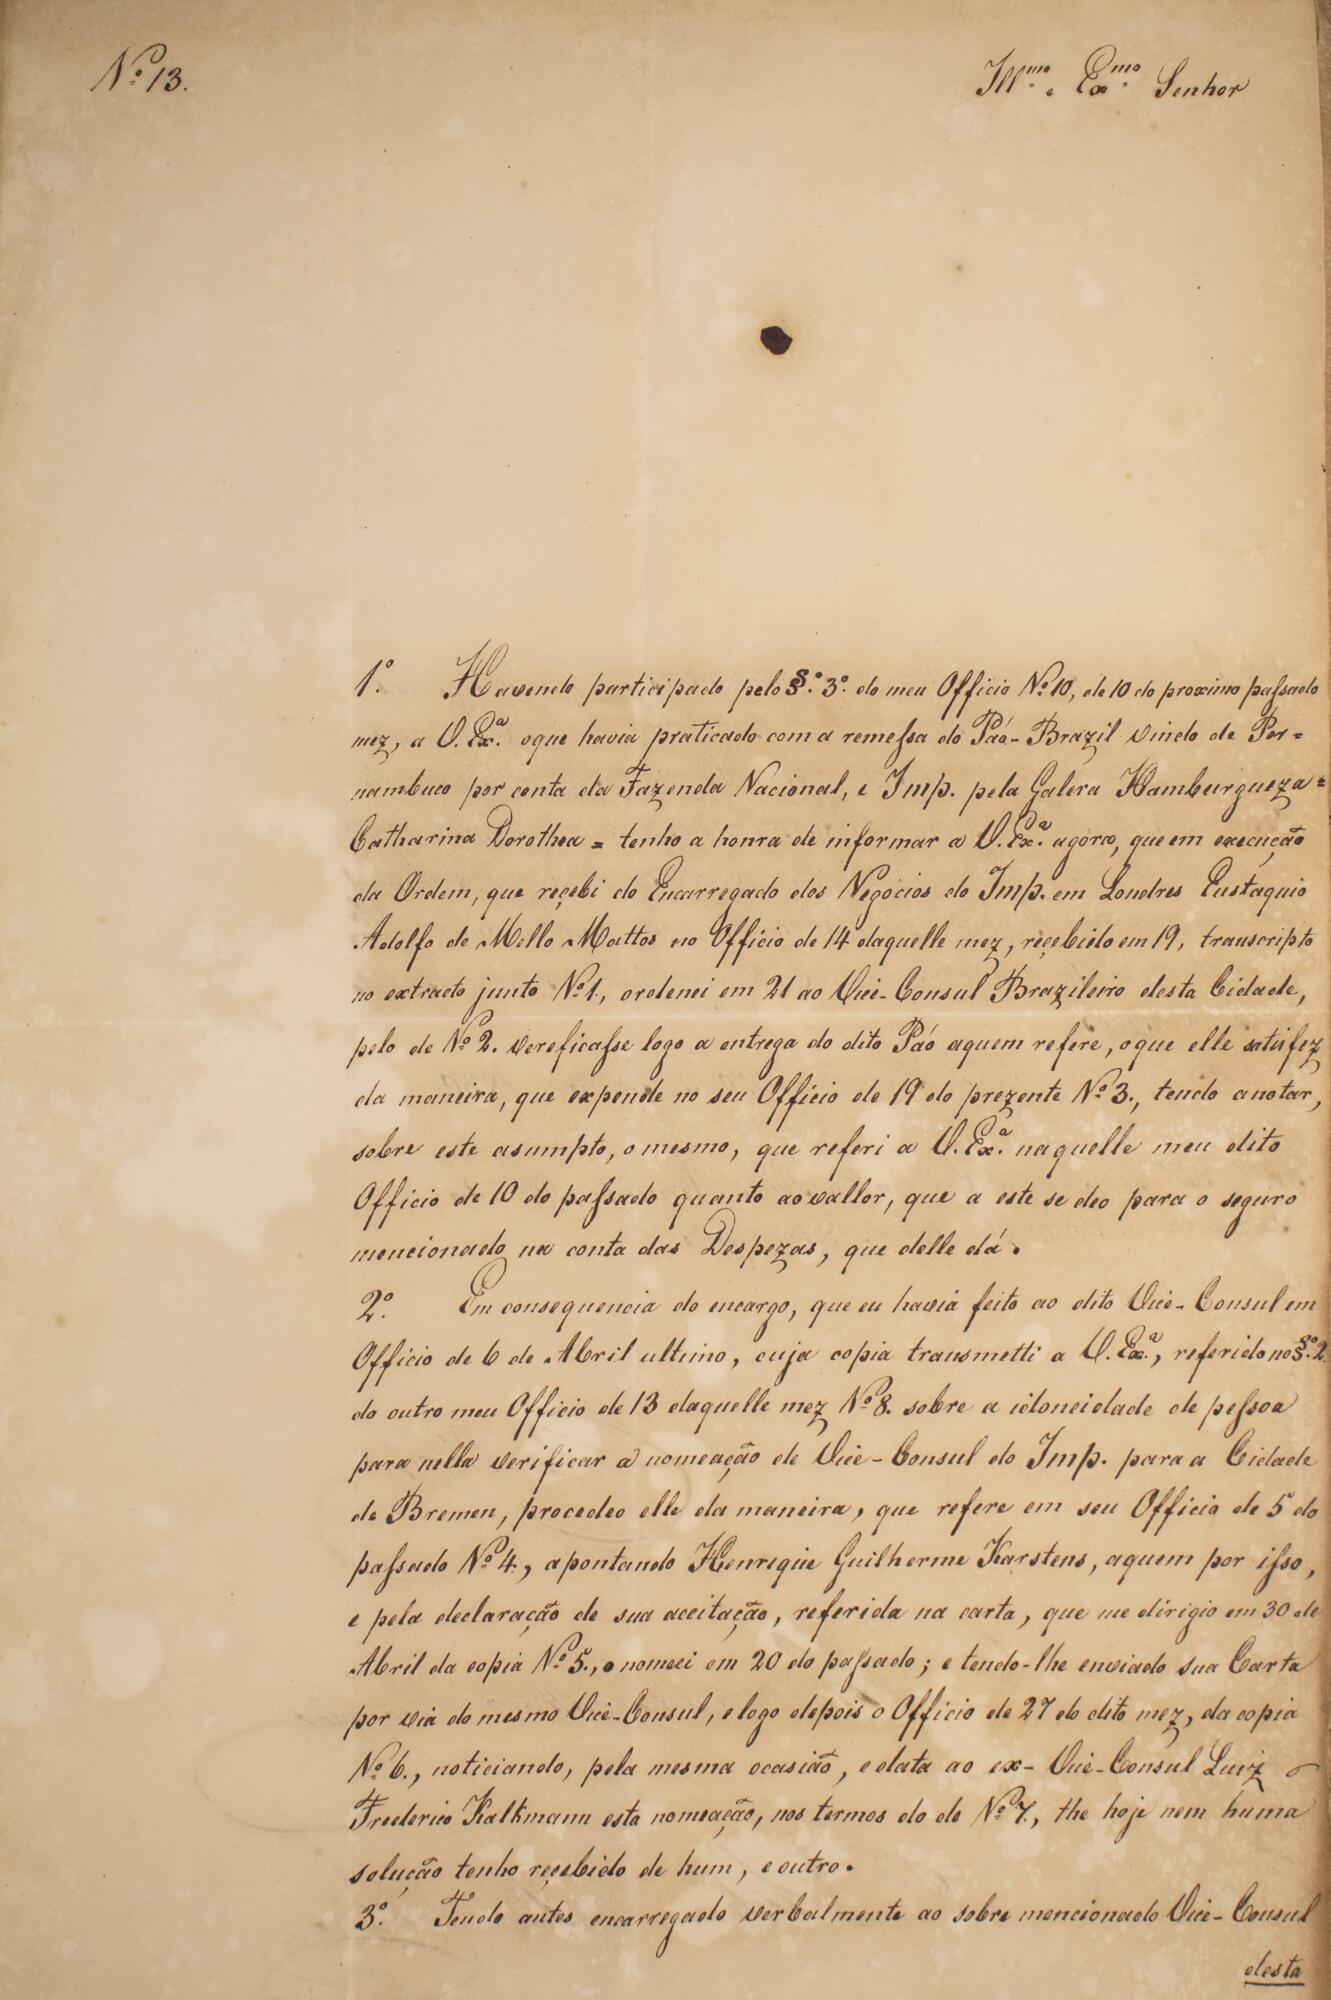 Nº 13.
Illmo. e Exmo. Senhor
1º. Havendo participado pelo §º. 3º. do meu Officio Nº 10, de 10 do proximo passado
mez, a V. Exª. oque havia praticado com a remessa do Páo-Brazil vindo de Per=
nambuco por conta da Fazenda Nacional, e Imp. pela Galera Hamburgueza=
Catharina Dorothea = tenho a honra de informar a V. Exª. agora, que em execução
da Ordem, que reçebi do Encarregado dos Negocios do Imp. em Londres Eustaquio
Adolfo de Mello Mattos no Officio de 14 daquelle mez, reçebido em 19, transcripto
no extracto junto Nº 1., ordenei em 21 ao Vice-Consul Brazileiro desta Cidade,
pelo de Nº 2. vereficasse logo a entrega do dito Páo aquem refere, oque elle satisfez
da maneira, que expende no seu Officio de 19 do prezente Nº 3., tendo anotar,
sobre este asumpto, o mesmo, que referi a V. Exª. naquelle meu dito
Officio de 10 do passado quanto ao vallor, que a este se deo para o seguro
mencionado na conta das Despezas, que delle dá.
2º. Em consequencia do encargo, que eu haviá feito ao dito Vice-Consul em
Officio de 6 de Abril ultimo, cuja copia transmetti a V. Exª., referido no §º. 2.
do outro meu Officio de 13 daquelle mez Nº 8. sobre a idoneidade de pessoa
para nella verificar a nomeação de Vice-Consul do Imp. para a Cidade
de Bremen, procedeo elle da maneira, que refere em seu Officio de 5 do
passado Nº 4., apontando Henrique Guilherme Karstens, aquem por isso,
e pela declaração de sua aceitação, referida na carta, que me dirigio em 30 de
Abril da copia Nº 5., o nomeei em 20 do passado; e tendo-lhe enviado sua Carta
por via do mesmo Vice-Consul, e logo depois o Officio de 27 do dito mez, da copia
Nº 6., noticiando, pela mesma ocasião, e data ao ex-Vice-Consul Luiz
Frederico Kalkmann esta nomeação, nos termos do de Nº 7., the hoje nem huma
solução tenho reçebido de hum, e outro.
3º. Tendo antes encarregado verbalmente ao sobre mencionado Vice-Consul
desta